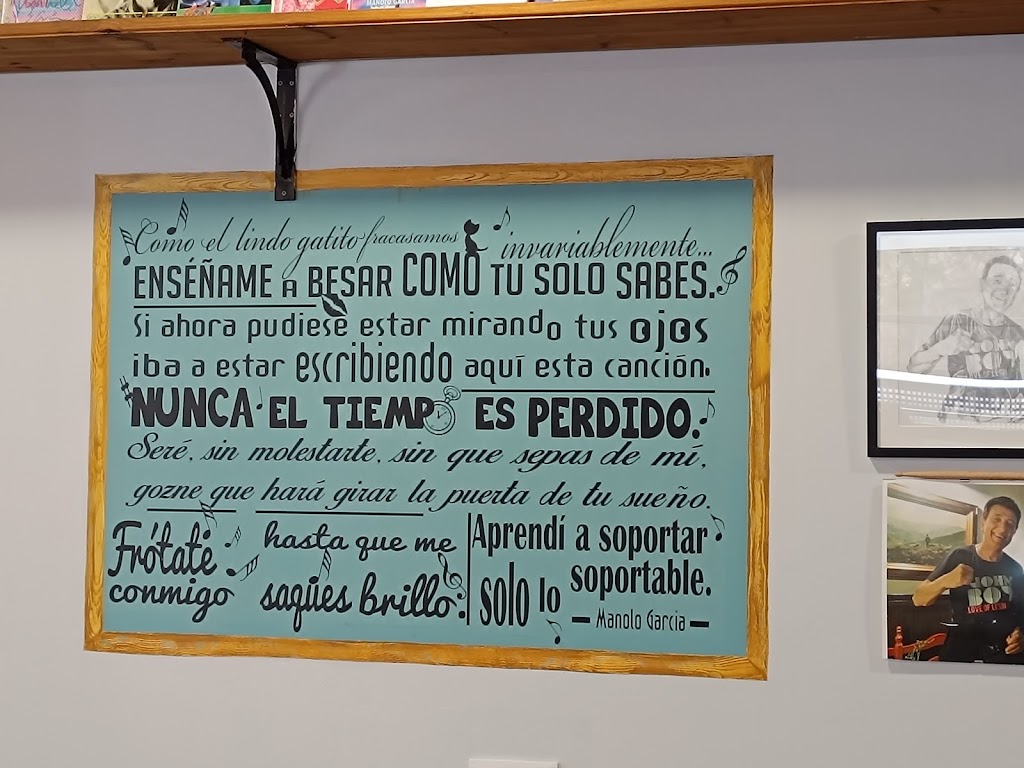 MANOLO GARCIA
Como el lindo gatito fracasamos invariablemente...
ENSÉÑAME A BESAR COMO TU SOLO SABES.
Si ahora pudiese estar mirando tus ojos
iba a estar escribiendo aquí esta canción.
NUNCA EL TIEMPO ES PERDIDO.
Seré, sin molestarte, sin que sepas de mí,
gozne que hará girar la puerta de tu sueño.
Frótate
conmigo
hasta que me
saqües brillo.
Aprendí a soportar
solo lo soportable.
Manolo Garcia
JOHN
BOY
LOVE OF LESBIAN